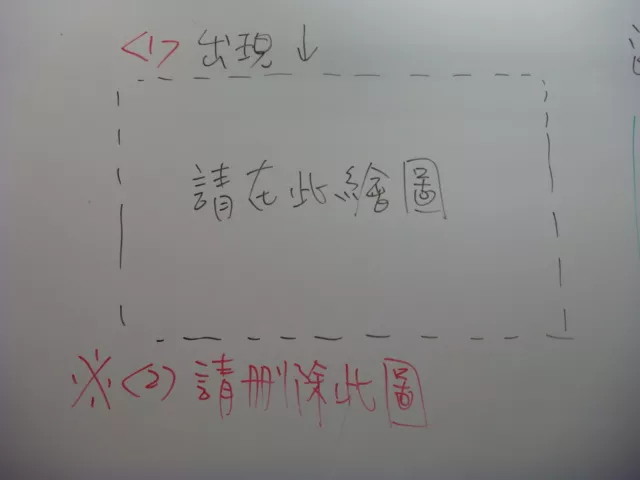 <1> 出現 ↓
請在此繪圖
※ <2> 請刪除此圖